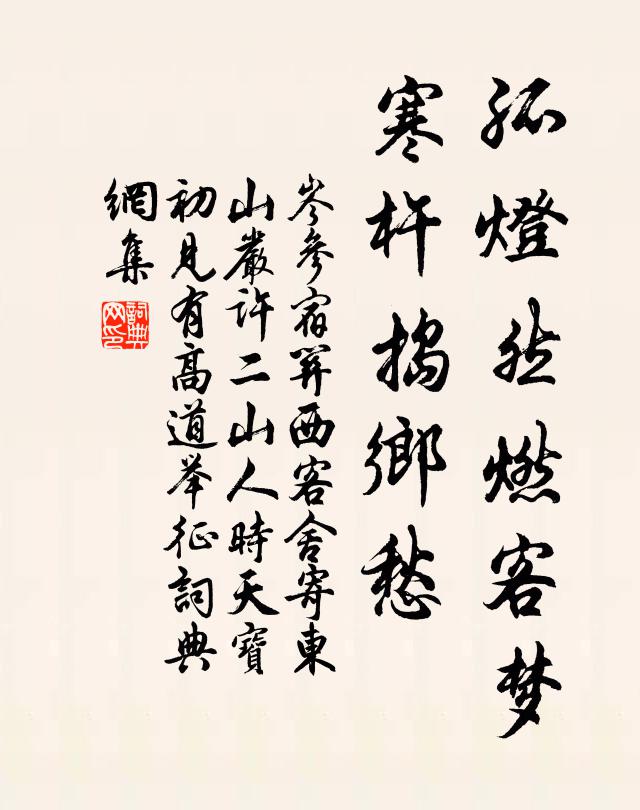 孤燈然燃客梦
寒杵搗鄉愁
岑參宿關西客舍寄東
山嚴許二山人時天寶
初見有高道举征詞典
網集
詞典
网印